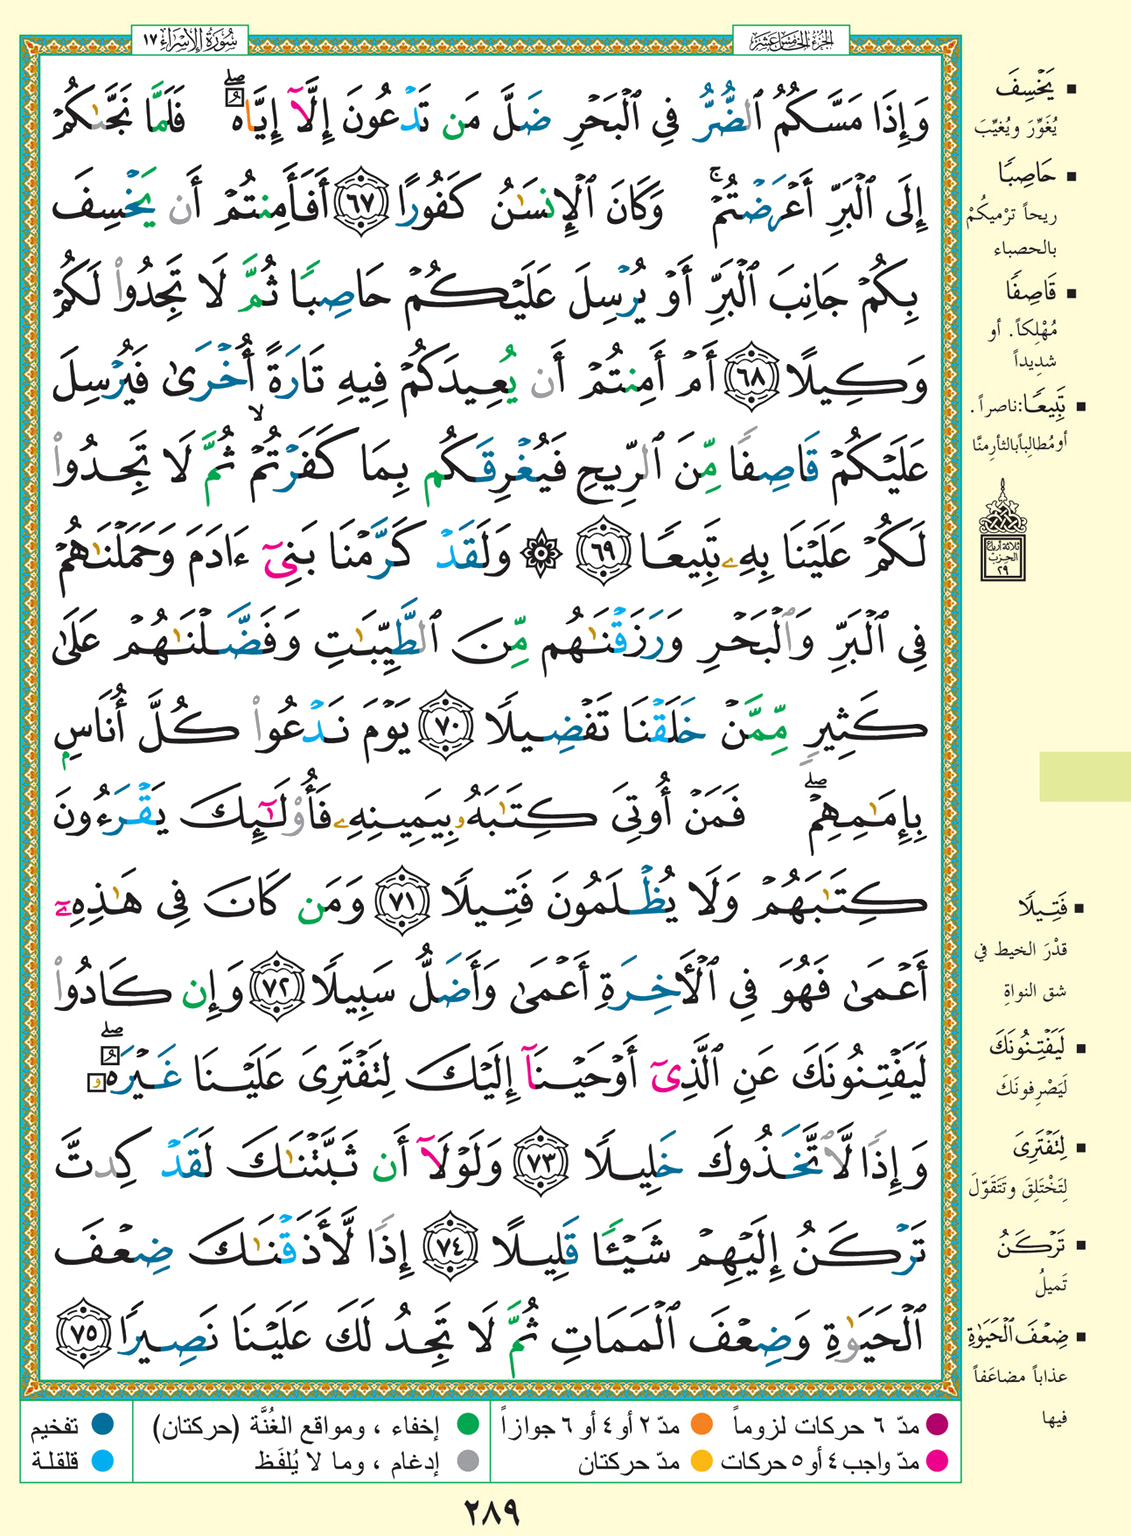 سُورَةُ الإِسْرَاءِ ١٧
الجُزءُ الخَامِسَ عَشَرَ
وَإِذَا مَسَّكُمُ ٱلضُّرُّ فِى ٱلْبَحْرِ ضَلَّ مَن تَدْعُونَ إِلَّآ إِيَّاهُ ۖ فَلَمَّا نَجَّىٰكُمْ
إِلَى ٱلْبَرِّ أَعْرَضْتُمْ ۚ وَكَانَ ٱلْإِنسَـٰنُ كَفُورًا ٦٧ أَفَأَمِنتُمْ أَن يَخْسِفَ
بِكُمْ جَانِبَ ٱلْبَرِّ أَوْ يُرْسِلَ عَلَيْكُمْ حَاصِبًا ثُمَّ لَا تَجِدُوا۟ لَكُمْ
وَكِيلًا ٦٨ أَمْ أَمِنتُمْ أَن يُعِيدَكُمْ فِيهِ تَارَةً أُخْرَىٰ فَيُرْسِلَ
عَلَيْكُمْ قَاصِفًا مِّنَ ٱلرِّيحِ فَيُغْرِقَكُم بِمَا كَفَرْتُمْ ۙ ثُمَّ لَا تَجِدُوا۟
لَكُمْ عَلَيْنَا بِهِۦ تَبِيعًا ٦٩ ۞ وَلَقَدْ كَرَّمْنَا بَنِىٓ ءَادَمَ وَحَمَلْنَـٰهُمْ
فِى ٱلْبَرِّ وَٱلْبَحْرِ وَرَزَقْنَـٰهُم مِّنَ ٱلطَّيِّبَـٰتِ وَفَضَّلْنَـٰهُمْ عَلَىٰ
كَثِيرٍ مِّمَّنْ خَلَقْنَا تَفْضِيلًا ٧٠ يَوْمَ نَدْعُوا۟ كُلَّ أُنَاسٍۭ
بِإِمَـٰمِهِمْ ۖ فَمَنْ أُوتِىَ كِتَـٰبَهُۥ بِيَمِينِهِۦ فَأُو۟لَـٰٓئِكَ يَقْرَءُونَ
كِتَـٰبَهُمْ وَلَا يُظْلَمُونَ فَتِيلًا ٧١ وَمَن كَانَ فِى هَـٰذِهِۦٓ
أَعْمَىٰ فَهُوَ فِى ٱلْـَٔاخِرَةِ أَعْمَىٰ وَأَضَلُّ سَبِيلًا ٧٢ وَإِن كَادُوا۟
لَيَفْتِنُونَكَ عَنِ ٱلَّذِىٓ أَوْحَيْنَآ إِلَيْكَ لِتَفْتَرِىَ عَلَيْنَا غَيْرَهُۥ ۖ
وَإِذًا لَّٱتَّخَذُوكَ خَلِيلًا ٧٣ وَلَوْلَآ أَن ثَبَّتْنَـٰكَ لَقَدْ كِدتَّ
تَرْكَنُ إِلَيْهِمْ شَيْـًٔا قَلِيلًا ٧٤ إِذًا لَّأَذَقْنَـٰكَ ضِعْفَ
ٱلْحَيَوٰةِ وَضِعْفَ ٱلْمَمَاتِ ثُمَّ لَا تَجِدُ لَكَ عَلَيْنَا نَصِيرًا ٧٥
يَخْسِفَ
يُغَوِّرَ ويُغيِّبَ
حَاصِبًا
ريحاً ترْميكُمْ
بالحصباء
قَاصِفًا
مُهْلِكاً. أو
شديداً
تَبِيعًا: ناصراً.
أو مُطالِباً بالثأر مِنّا
ثلاثة أرباع
الحزب
٢٩
فَتِيلًا
قدْرَ الخيط في
شق النواةِ
لَيَفْتِنُونَكَ
لَيَصْرِفونَكَ
لِتَفْتَرِىَ
لِتَخْتَلِقَ وتَتَقَوّلَ
تَرْكَنُ
تَميلُ
ضِعْفَ ٱلْحَيَوٰةِ
عذاباً مضاعَفاً
فيها
مدّ ٦ حركات لزوماً مدّ ٢ أو ٤ أو ٦ جوازاً إخفاء ، ومواقع الغُنَّة (حركتان) تفخيم
مدّ واجب ٤ أو ٥ حركات مدّ حركتان إدغام ، وما لا يُلفَظ قلقلة
٢٨٩